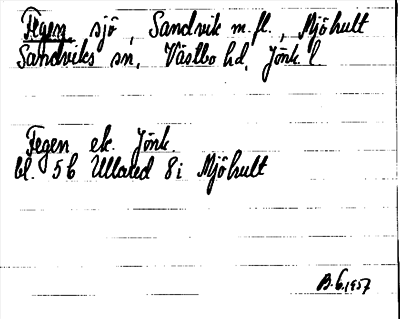 Fegen sjö, Sandvik m.fl., Mjöhult
Sandviks sn, Västbo hd, Jönk. l
Fegen ek. Jönk.
bl. 5b Ullared 8i Mjöhult
B.G. 1957